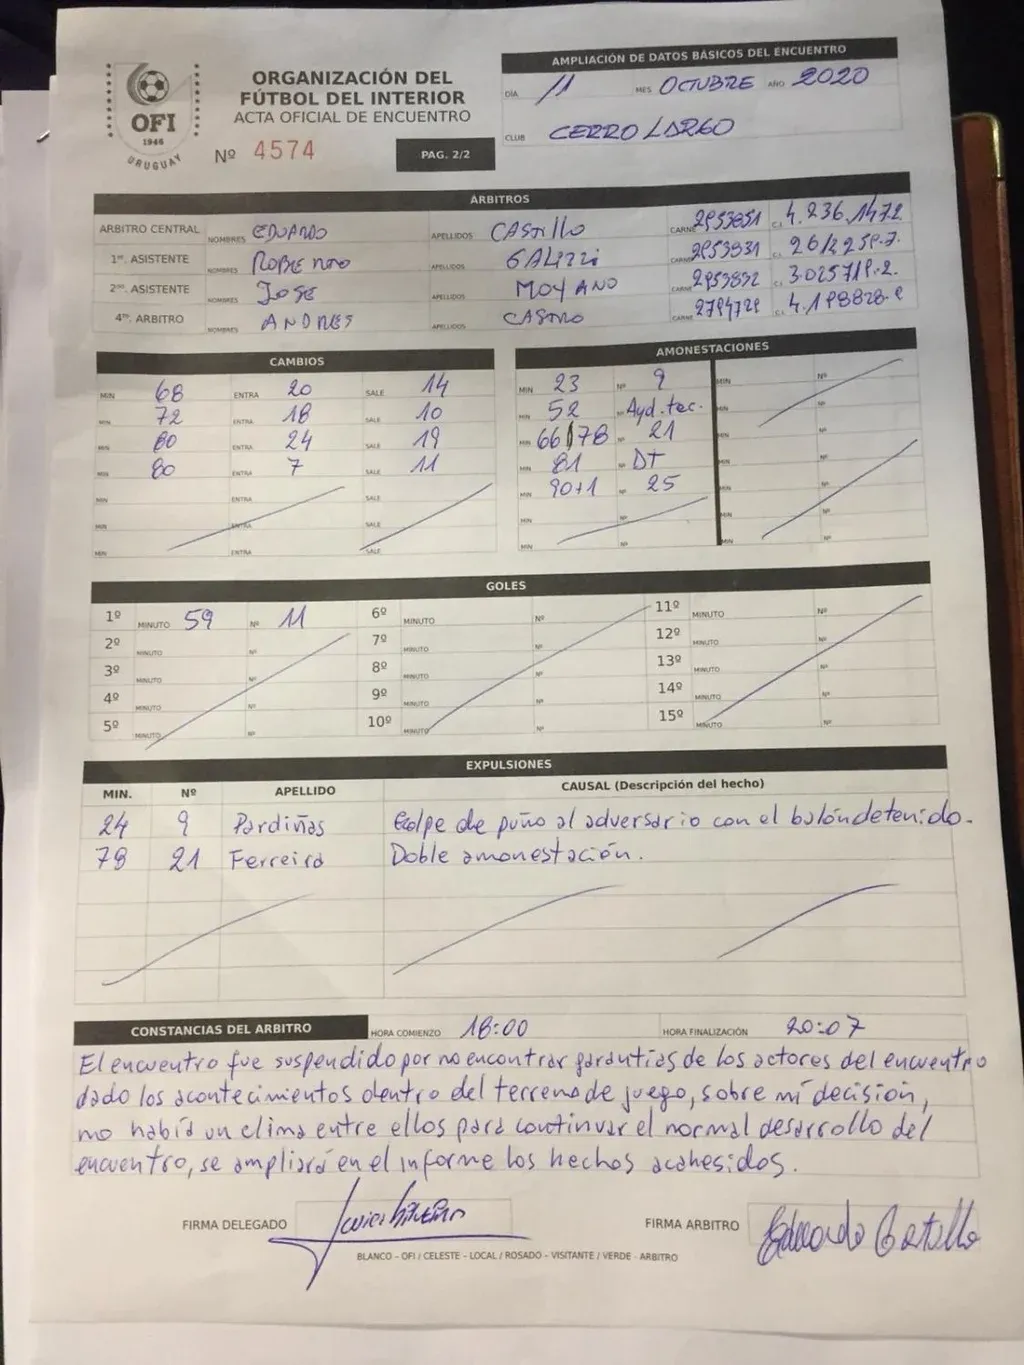 OFI
1946
URUGUAY
ORGANIZACIÓN DEL
FÚTBOL DEL INTERIOR
ACTA OFICIAL DE ENCUENTRO
Nº 4574
PAG. 2/2
AMPLIACIÓN DE DATOS BÁSICOS DEL ENCUENTRO
DÍA 11 MES OCTUBRE AÑO 2020
CLUB CERRO LARGO
ÁRBITROS
ARBITRO CENTRAL NOMBRES EDUARDO APELLIDOS CASTILLO CARNE 2953851 C.I. 4.236.1472
1er. ASISTENTE NOMBRES ROBERTO APELLIDOS GALIZZI CARNE 2953831 C.I.
2do. ASISTENTE NOMBRES JOSE APELLIDOS MOYANO CARNE 2953832 C.I. 3.025719.2.
4to. ARBITRO NOMBRES ANDRES APELLIDOS CASTRO CARNE C.I.
CAMBIOS
MIN 68 ENTRA 20 SALE 14
MIN 72 ENTRA 18 SALE 10
MIN 80 ENTRA 24 SALE 19
MIN 80 ENTRA 7 SALE 11
MIN ENTRA SALE
MIN ENTRA SALE
MIN ENTRA SALE
AMONESTACIONES
MIN 23 Nº 9 MIN Nº
MIN 52 Nº Ayd.tec. MIN Nº
MIN 66/78 Nº 21 MIN Nº
MIN 81 Nº DT MIN Nº
MIN 90+1 Nº 25 MIN Nº
MIN Nº MIN Nº
MIN Nº MIN Nº
GOLES
1º MINUTO 59 Nº 11 6º MINUTO Nº 11º MINUTO Nº
2º MINUTO Nº 7º MINUTO Nº 12º MINUTO Nº
3º MINUTO Nº 8º MINUTO Nº 13º MINUTO Nº
4º MINUTO Nº 9º MINUTO Nº 14º MINUTO Nº
5º MINUTO Nº 10º MINUTO Nº 15º MINUTO Nº
EXPULSIONES
MIN. Nº APELLIDO CAUSAL (Descripción del hecho)
24 9 Pardiñas Golpe de puño al adversario con el balón detenido.
78 21 Ferreira Doble amonestación.
CONSTANCIAS DEL ARBITRO HORA COMIENZO 18:00 HORA FINALIZACIÓN 20:07
El encuentro fue suspendido por no encontrar garantías de los actores del encuentro
dado los acontecimientos dentro del terreno de juego, sobre mi decisión,
no había un clima entre ellos para continuar el normal desarrollo del
encuentro, se ampliará en el informe los hechos acahesidos.
FIRMA DELEGADO FIRMA ARBITRO Eduardo Castillo
BLANCO - OFI / CELESTE - LOCAL / ROSADO - VISITANTE / VERDE - ARBITRO